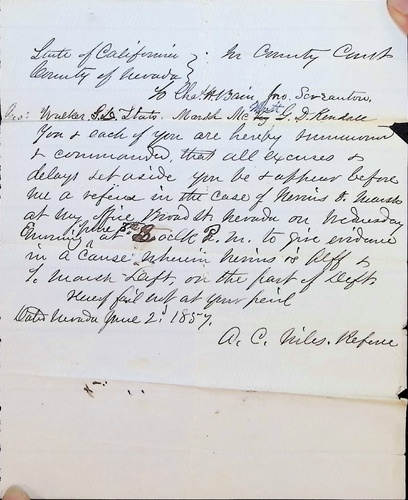 State of California } In County Court
County of Nevada }
To Chas. W. Bain, Jno. Scranton,
Walker Marsh G. D. Kendall
You & each of you are hereby summoned
& commanded, that all excuses &
delays set aside you be & appear before
me a referee in the case of Nevins v. Marsh
at my office Broad St. Nevada on Wednesday
Evening June 3rd at 8 o'clk P. M. to give evidence
in a cause wherein Nevins is Plff &
T. Marsh Deft, on the part of Deft
Hereof fail not at your peril
Dated Nevada June 2d 1857.
A. C. Niles. Referee